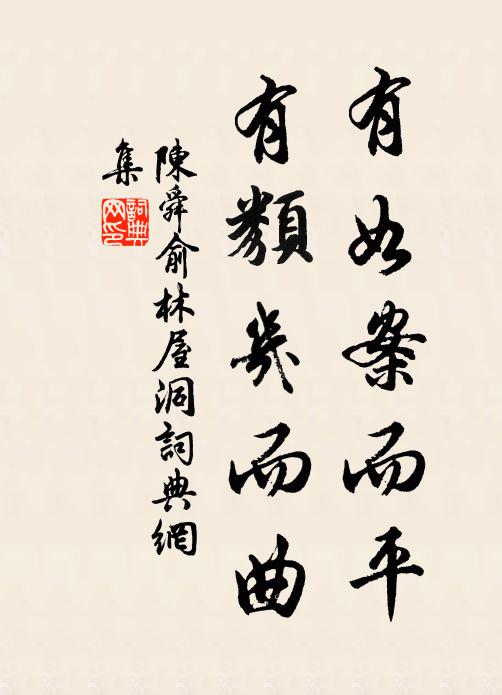 有如案而平
有類几而曲
陳舜俞林屋洞詞典網
集
詞典
网印